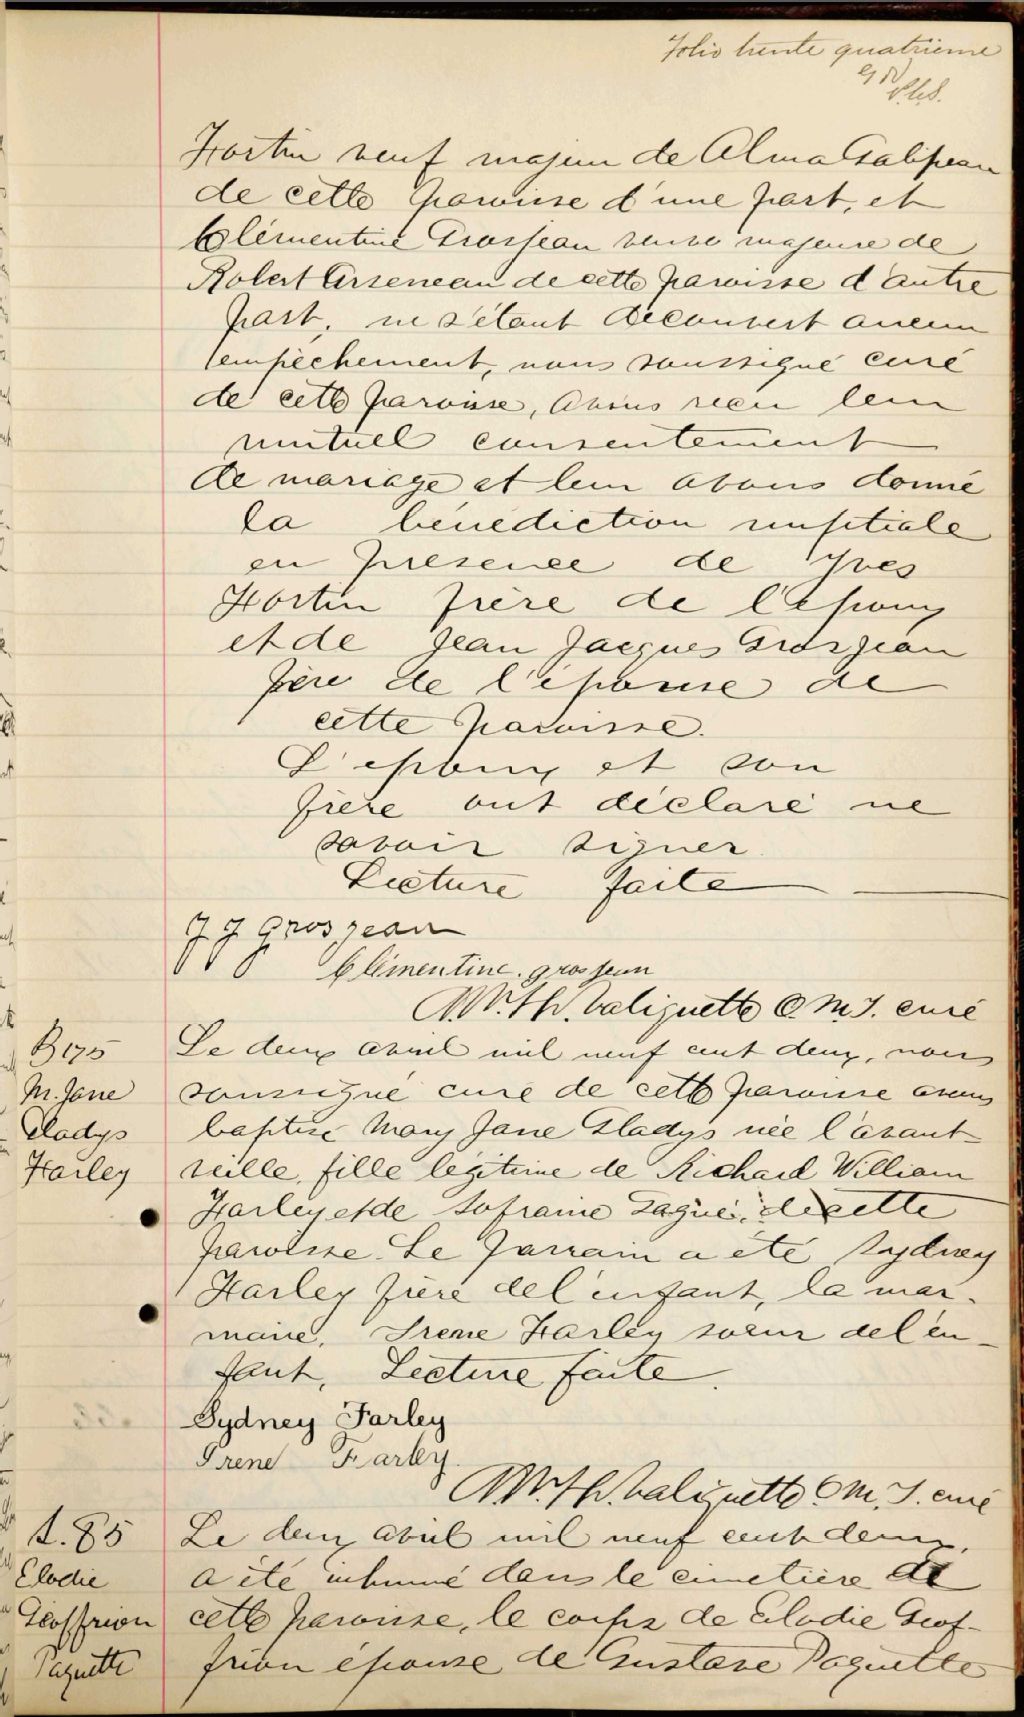 Folio trente quatrième
P.L.S.
Fortin veuf majeur de Alma Galipeau
de cette paroisse d'une part, et
Clémentine Grosjean veuve majeure de
Robert Arseneau de cette paroisse d'autre
part, ne s'étant découvert aucun
empêchement, nous soussigné curé
de cette paroisse, avons reçu leur
mutuel consentement
de mariage et leur avons donné
la bénédiction nuptiale
en présence de Yves
Fortin frère de l'époux
et de Jean Jacques Grosjean
père de l'épouse de
cette paroisse.
L'époux et son
frère ont déclaré ne
savoir signer
Lecture faite
J J Grosjean
Clémentine. grosjean
Valiquette O.M.I. curé
B 175
M. Jane
Gladys
Farley
Le deux avril mil neuf cent deux, nous
soussigné curé de cette paroisse avons
baptisé Mary Jane Gladys née l'avant
veille, fille légitime de Richard William
Farley et de Sofranie Gagné, de cette
paroisse. Le parrain a été Sydney
Farley frère de l'enfant, la mar-
raine, Irene Farley soeur de l'en-
fant, Lecture faite.
Sydney Farley
Irene Farley.
Valiquette O.M.I. curé
S. 85
Elodie
Geoffrion
Paquette
Le deux avril mil neuf cent deux,
a été inhumé dans le cimetière de
cette paroisse, le corps de Elodie Geof-
frion épouse de Gustave Paquette